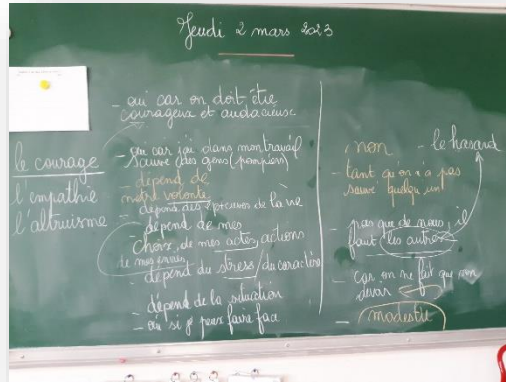 Jeudi 2 mars 2023
le courage
l'empathie
l'altruisme
- oui car on doit être
courageux et audacieuse
- oui car j'ai dans mon travail
sauvé des gens (pompiers)
- dépend de
notre volonté
- dépend des épreuves de la vie
- dépend de mes
choix, de mes actes, actions
de mes envies
- dépend du stress / du caractère
- dépend de la situation
- oui si je peux faire face
non
- le hasard
- tant qu'on n'a pas
sauvé quelqu'un
- pas que de nous, il
faut les autres
- car on ne fait que son
devoir
- modestie